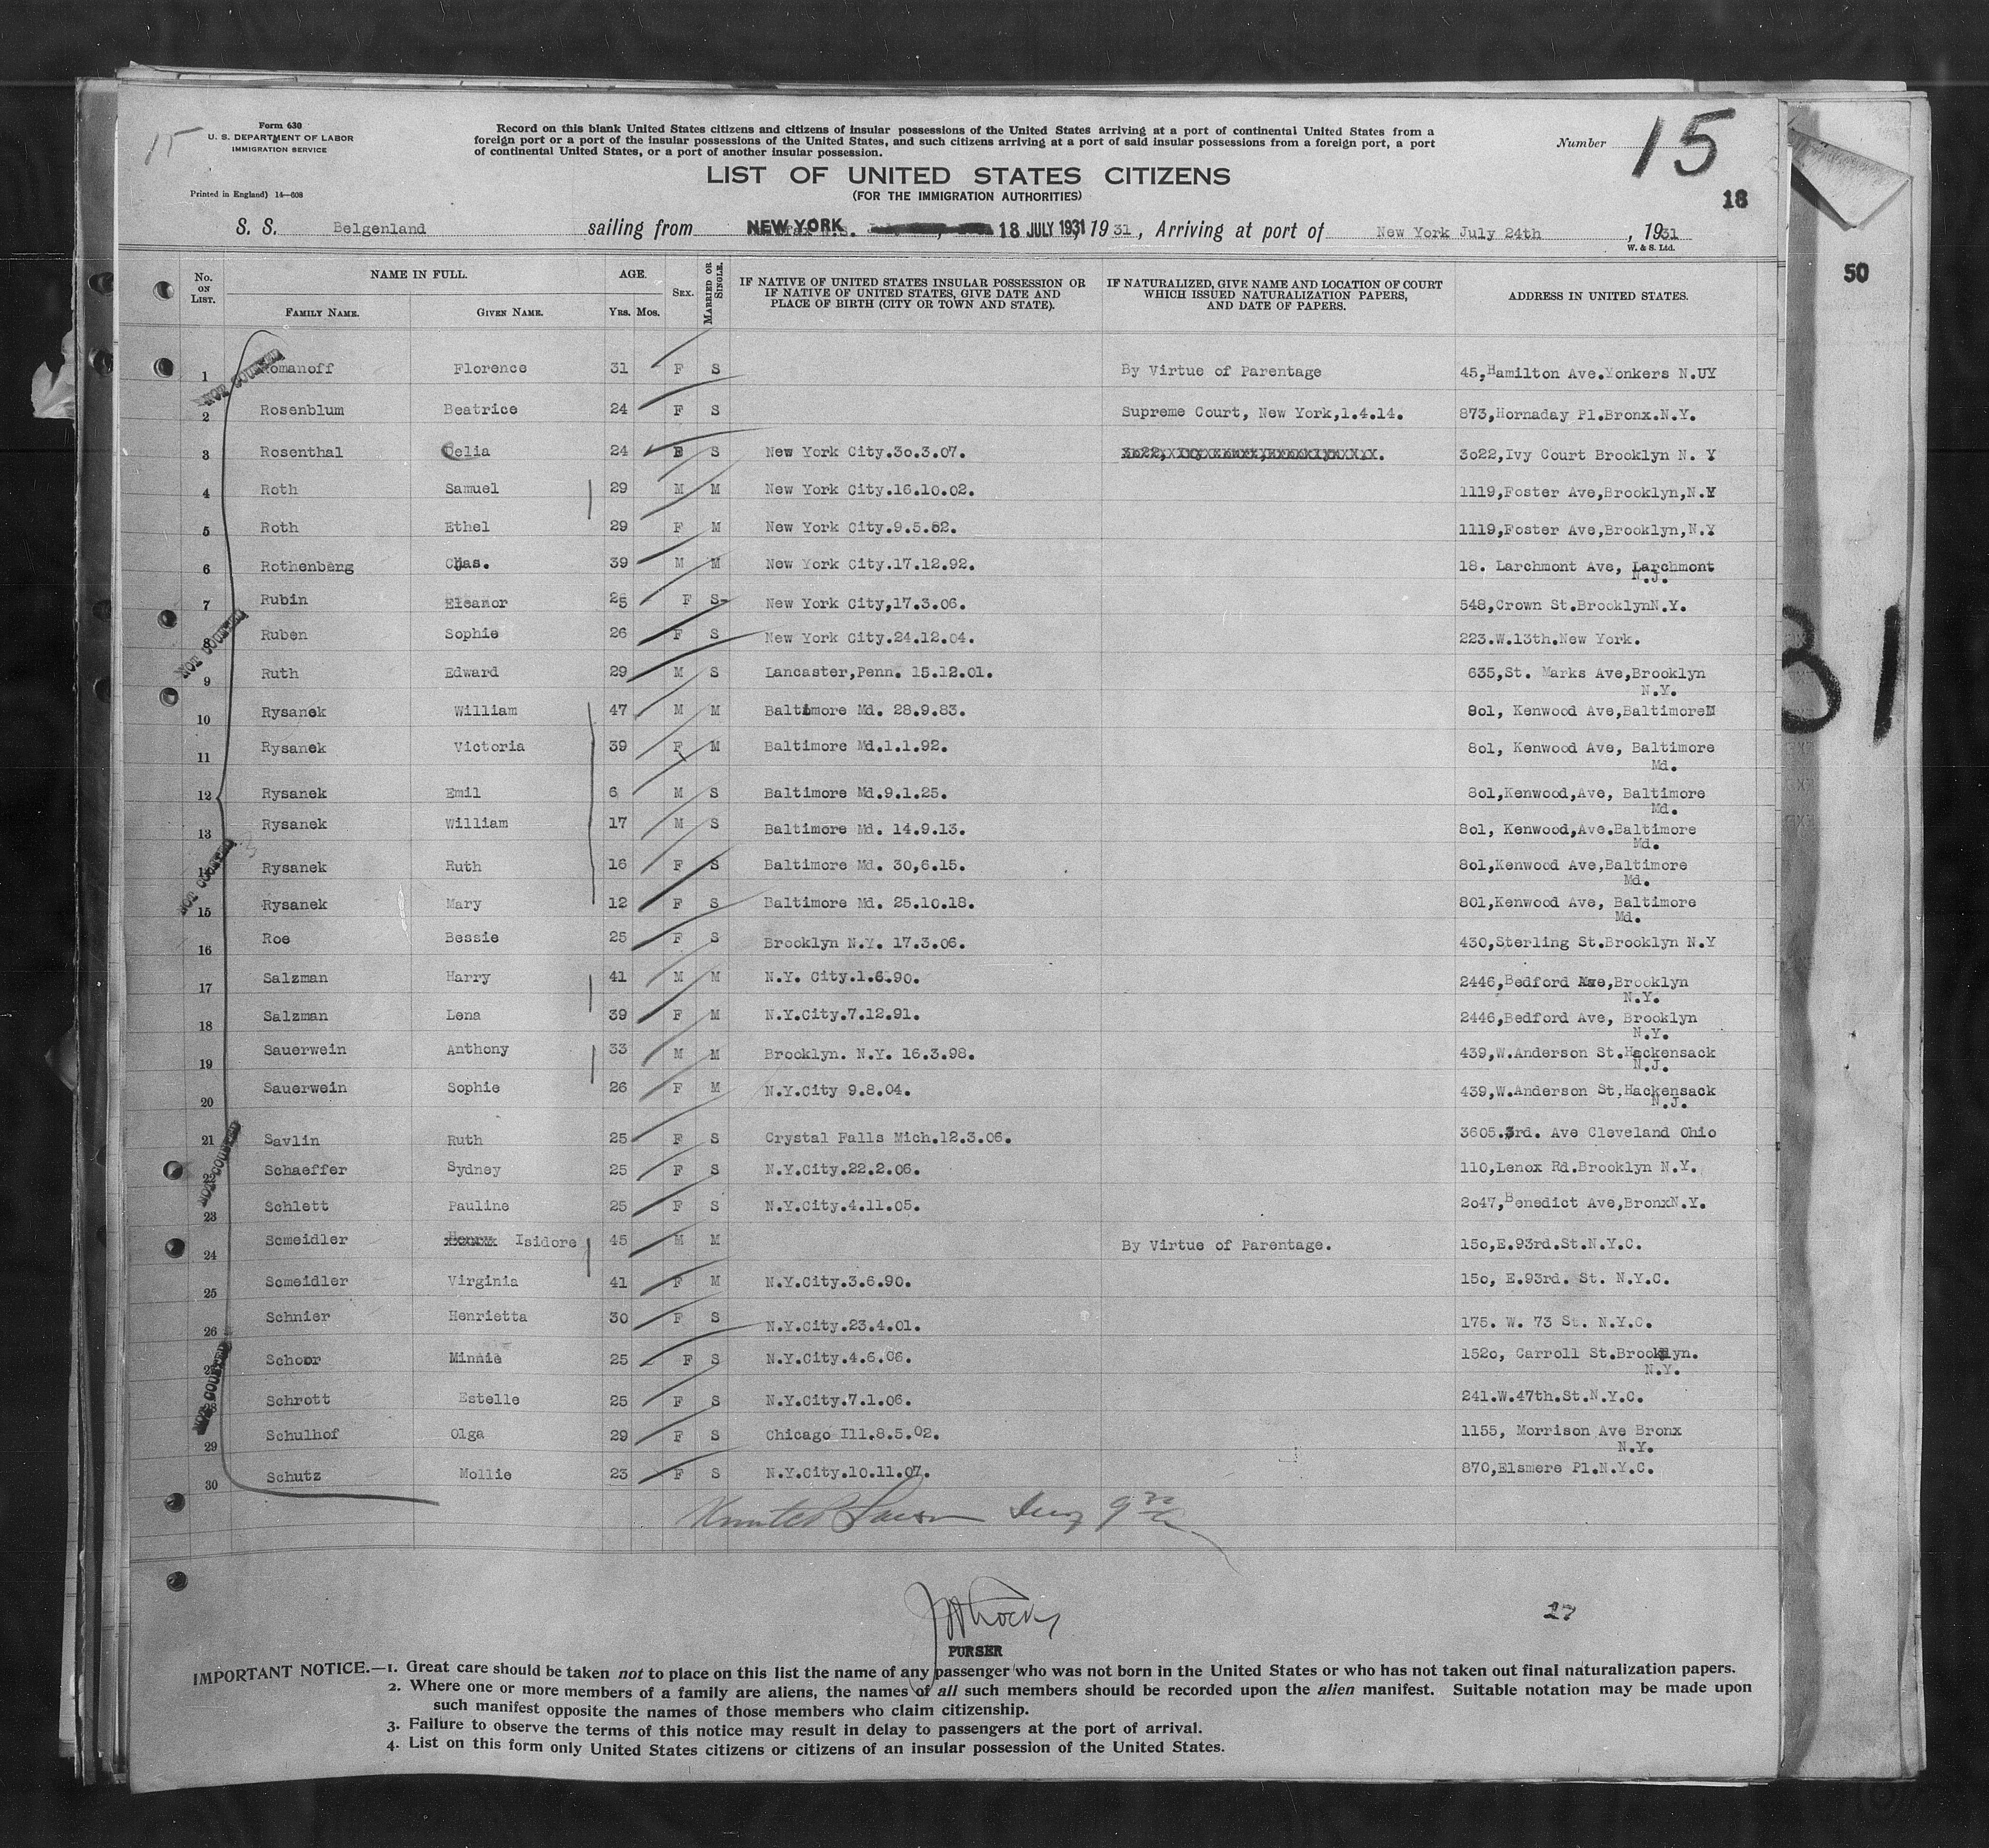 15
Form 630
U. S. DEPARTMENT OF LABOR
IMMIGRATION SERVICE
Printed in England) 14—608
Record on this blank United States citizens and citizens of insular possessions of the United States arriving at a port of continental United States from a
foreign port or a port of the insular possessions of the United States, and such citizens arriving at a port of said insular possessions from a foreign port, a port
of continental United States, or a port of another insular possession.
Number 15
LIST OF UNITED STATES CITIZENS
(FOR THE IMMIGRATION AUTHORITIES)
18
S. S. Belgenland sailing from NEW YORK. 18 JULY 1931, 1931, Arriving at port of New York July 24th, 1931
W. & S. Ltd.
50
No. ON LIST. NAME IN FULL. FAMILY NAME. GIVEN NAME. AGE. YRS. MOS. SEX. MARRIED OR SINGLE. IF NATIVE OF UNITED STATES INSULAR POSSESSION OR IF NATIVE OF UNITED STATES, GIVE DATE AND PLACE OF BIRTH (CITY OR TOWN AND STATE). IF NATURALIZED, GIVE NAME AND LOCATION OF COURT WHICH ISSUED NATURALIZATION PAPERS, AND DATE OF PAPERS. ADDRESS IN UNITED STATES.
NOT COUNTED
1 Romanoff Florence 31 F S By Virtue of Parentage 45,Hamilton Ave.Yonkers N.UY
2 Rosenblum Beatrice 24 F S Supreme Court, New York,1.4.14. 873,Hornaday Pl.Bronx.N.Y.
3 Rosenthal Celia 24 S New York City.3o.3.07. 3o22,Ivy Court Brooklyn N. Y
4 Roth Samuel 29 M M New York City.16.10.02. 1119,Foster Ave,Brooklyn,N.Y
5 Roth Ethel 29 F M New York City.9.5. 1119,Foster Ave,Brooklyn,N.Y
6 Rothenberg Chas. 39 M M New York City.17.12.92. 18. Larchmont Ave, Larchmont
N.J.
7 Rubin Eleanor 25 F S New York City,17.3.06. 548,Crown St.BrooklynN.Y.
NOT COUNTED
8 Ruben Sophie 26 F S New York City.24.12.04. 223.W.13th.New York.
9 Ruth Edward 29 M S Lancaster,Penn. 15.12.01. 635,St. Marks Ave,Brooklyn
N.Y.
10 Rysanek William 47 M M Baltimore Md. 28.9.83. 8o1, Kenwood Ave,BaltimoreM
11 Rysanek Victoria 39 F M Baltimore Md.1.1.92. 8o1, Kenwood Ave, Baltimore
Md.
12 Rysanek Emil 6 M S Baltimore Md.9.1.25. 8o1,Kenwood,Ave, Baltimore
Md.
13 Rysanek William 17 M S Baltimore Md. 14.9.13. 8o1, Kenwood,Ave.Baltimore
Md.
NOT COUNTED
14 Rysanek Ruth 16 F S Baltimore Md. 30,6.15. 8o1,Kenwood Ave,Baltimore
Md.
15 Rysanek Mary 12 F S Baltimore Md. 25.10.18. 801,Kenwood Ave, Baltimore
Md.
16 Roe Bessie 25 F S Brooklyn N.Y. 17.3.06. 430,Sterling St.Brooklyn N.Y
17 Salzman Harry 41 M M N.Y. City.1.6.90. 2446,Bedford Ave,Brooklyn
N.Y.
18 Salzman Lena 39 F M N.Y.City.7.12.91. 2446,Bedford Ave, Brooklyn
N.Y.
19 Sauerwein Anthony 33 M M Brooklyn. N.Y. 16.3.98. 439,W.Anderson St.Hackensack
N.J.
20 Sauerwein Sophie 26 F M N.Y.City 9.8.04. 439,W.Anderson St.Hackensack
N.J.
21 Savlin Ruth 25 F S Crystal Falls Mich.12.3.06. 3605.3rd. Ave Cleveland Ohio
NOT COUNTED
22 Schaeffer Sydney 25 F S N.Y.City.22.2.06. 110,Lenox Rd.Brooklyn N.Y.
23 Schlett Pauline 25 F S N.Y.City.4.11.05. 2o47,Benedict Ave,BronxN.Y.
24 Scmeidler Henry Isidore 45 M M By Virtue of Parentage. 15o,E.93rd.St.N.Y.C.
25 Scmeidler Virginia 41 F M N.Y.City.3.6.90. 15o, E.93rd. St. N.Y.C.
26 Schnier Henrietta 30 F S N.Y.City.23.4.01. 175. W. 73 St. N.Y.C.
NOT COUNTED
27 Schoor Minnie 25 F S N.Y.City.4.6.06. 152o, Carroll St.Brooklyn.
N.Y.
28 Schrott Estelle 25 F S N.Y.City.7.1.06. 241.W.47th.St.N.Y.C.
29 Schulhof Olga 29 F S Chicago Ill.8.5.02. 1155, Morrison Ave Bronx
N.Y.
30 Schutz Mollie 23 F S N.Y.City.10.11.07. 870,Elsmere Pl.N.Y.C.
27
PURSER
IMPORTANT NOTICE.—1. Great care should be taken not to place on this list the name of any passenger who was not born in the United States or who has not taken out final naturalization papers.
2. Where one or more members of a family are aliens, the names of all such members should be recorded upon the alien manifest. Suitable notation may be made upon
such manifest opposite the names of those members who claim citizenship.
3. Failure to observe the terms of this notice may result in delay to passengers at the port of arrival.
4. List on this form only United States citizens or citizens of an insular possession of the United States.